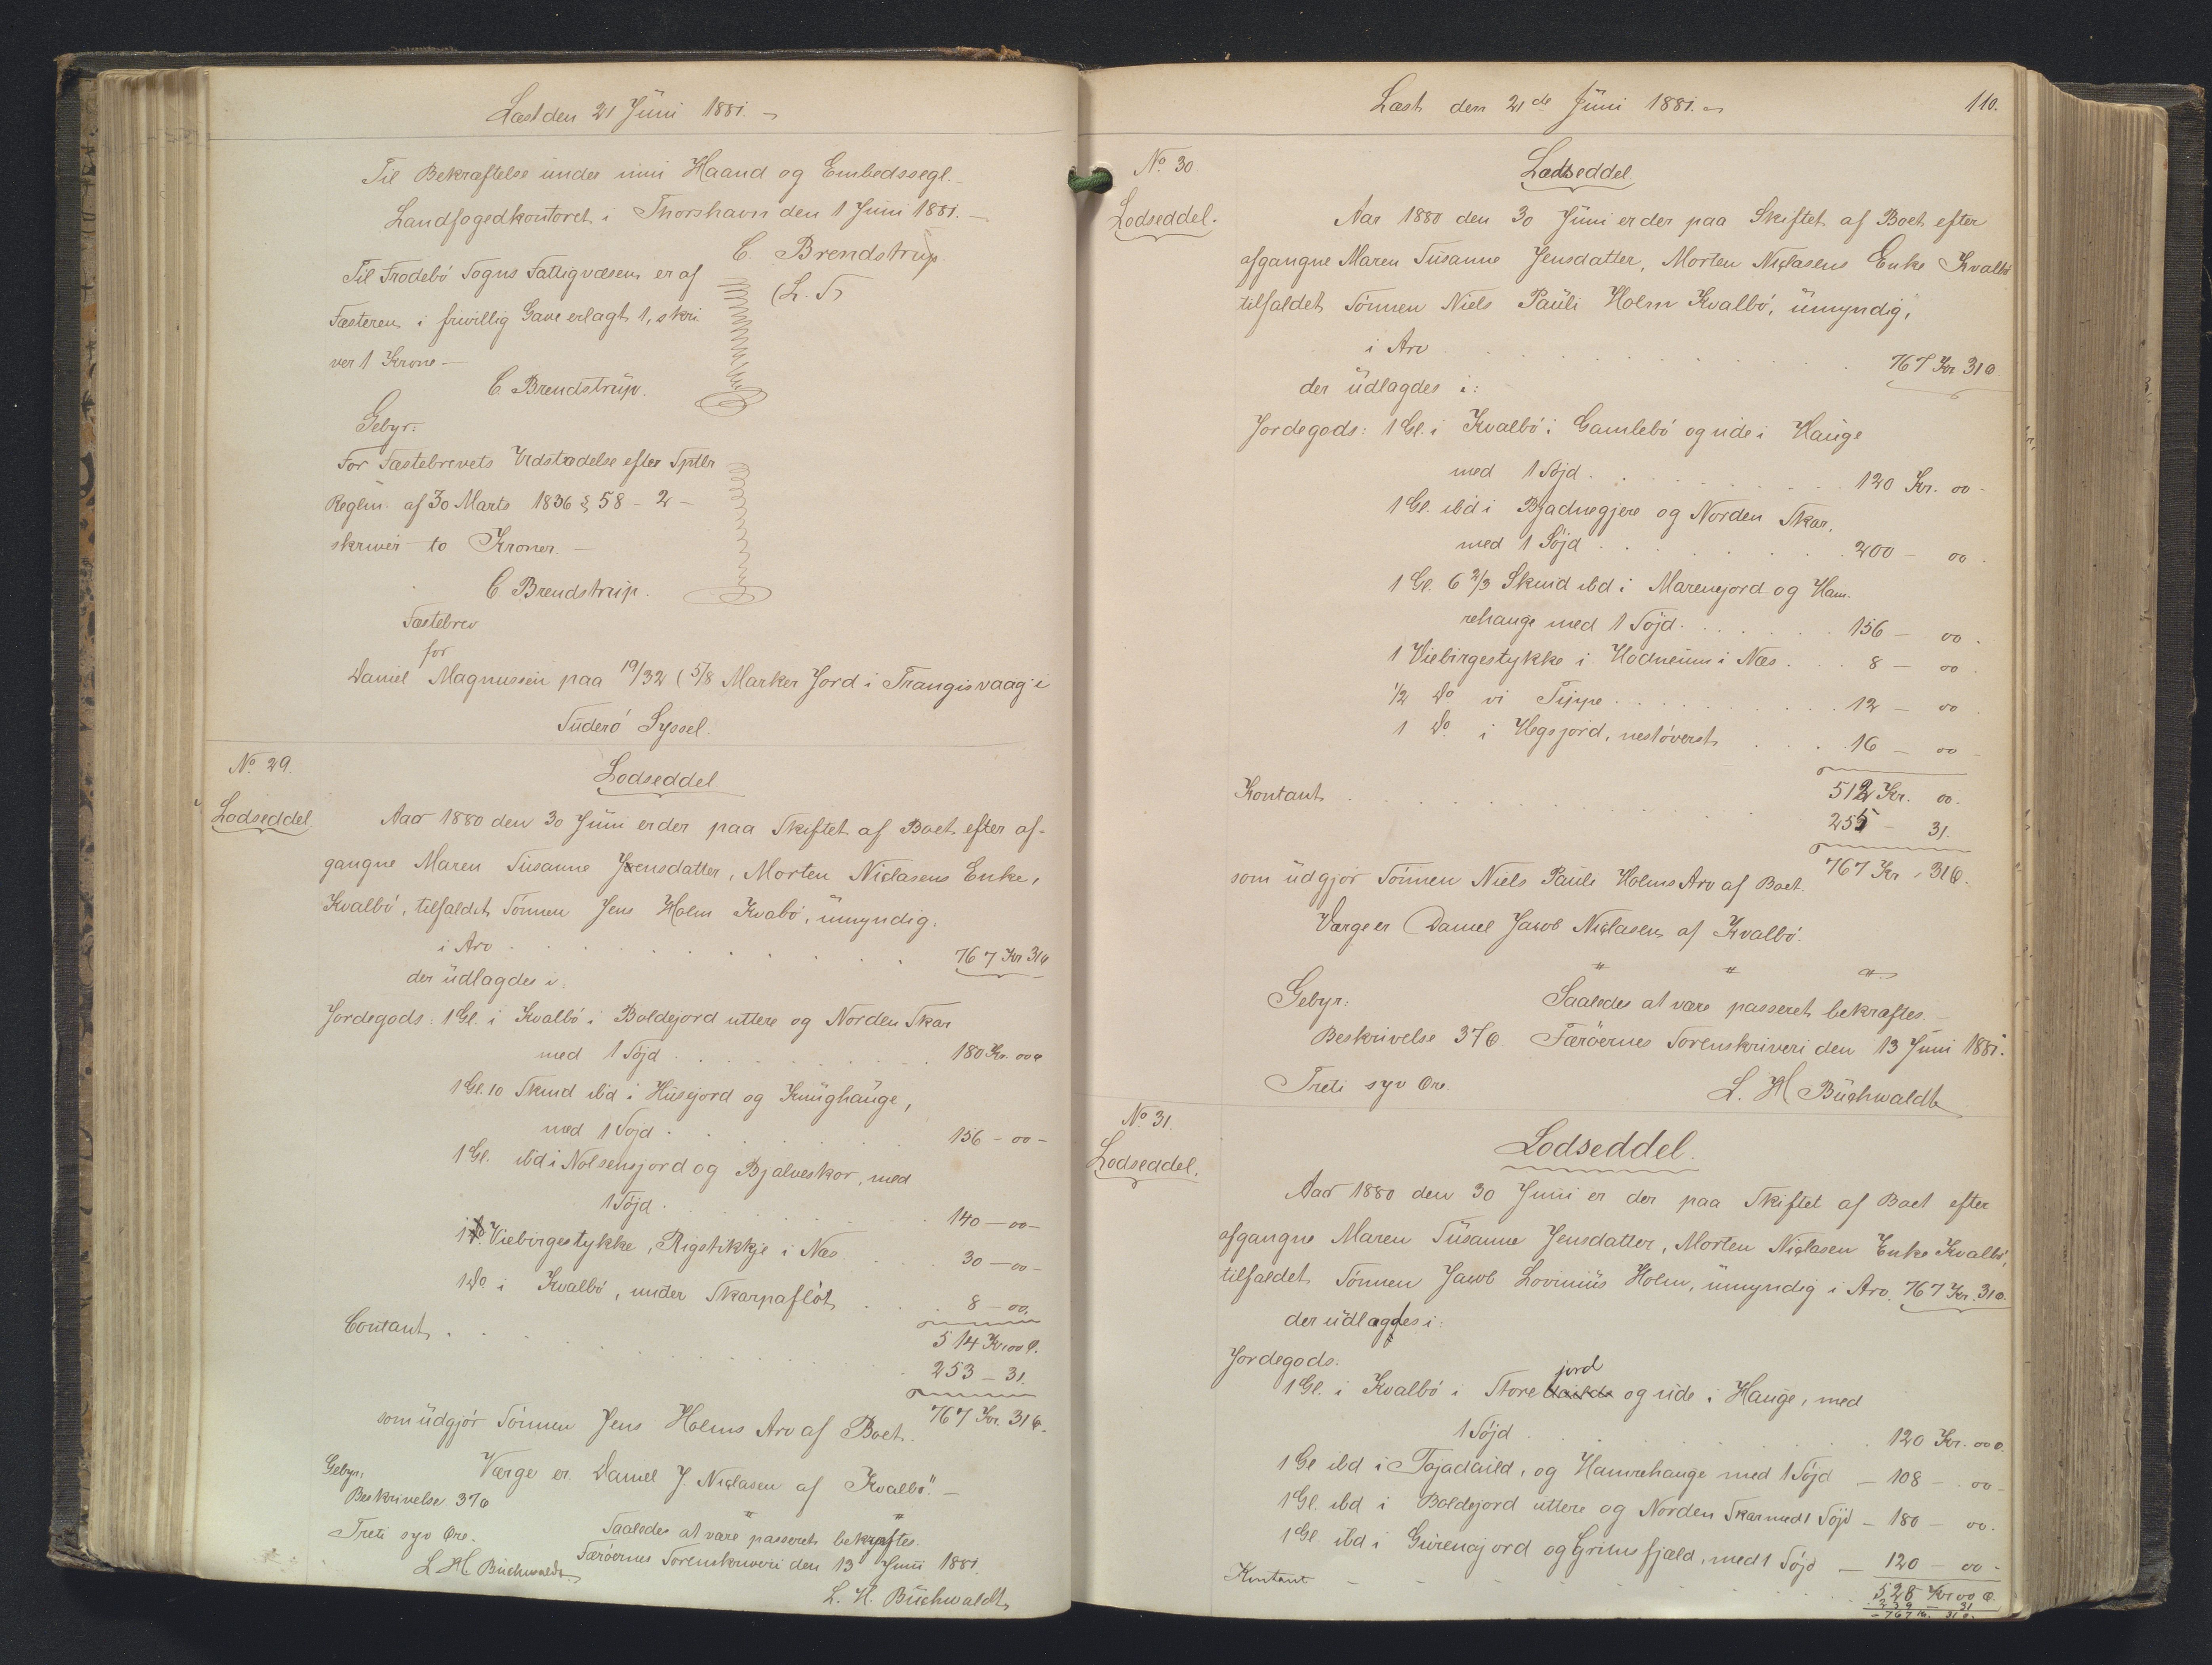 Læst den 21 Juni 1881.
Til Bekræftelse under min Haand og Embedssegl.
Landfogedkontoret i Thorshavn den 1 Juni 1881.
C. Brendstrup.
(L. S.
Til Frodebø Sogns Fattigvæsen er af
Fæsteren i frivillig Gave erlagt 1, skri
ver 1 Krone
C. Brendstrup.
Gebyr:
For Fæstebrevets Udstædelse efter Sptlr
Reglm. af 30 Marts 1836 § 58 - 2 -
skriver to Kroner.
C. Brendstrup.
Fæstebrev
for
Daniel Magnussen paa 19/32 (5/8 Marker Jord i Trangisvaag i
Suderø Syssel.
No. 29.
Lodseddel
Lodseddel
Aar 1880 den 30 Juni er der paa Skiftet af Boet efter af-
gangne Maren Susanne Jensdatter, Morten Niclasens Enke,
Kvalbø, tilfaldet Sønnen Jens Holm Kvabø, umyndig,
i Arv . . . 767 Kr 31 ø
der udlagdes i:
Jordegods: 1 Gl. i Kvalbø i Boldejord uttere og Norden Skar
med 1 Søjd . . . 180 Kr. 00 ø
1 Gl. 10 Skind ibd i Husejord og Knughauge,
med 1 Søjd . . . 156 - 00 -
1 Gl. ibd i Nolsensjord og Bjalveskor, med
1 Søjd . . . 140 - 00 -
1 Viebirgestykke, Rigstikkje i Næs . . . 30 - 00 -
1 Do i Kvalbø, under Skarpafløt . . . 8 - 00.
514 Kr 00 Ø.
Contant . . . 253 - 31.
767 Kr. 31 ø.
som udgjør Sønnen Jens Holms Arv af Boet.
Værge er Daniel J. Niclasen af Kvalbø. -
Gebyr:
Beskrivelse 37 ø
Treti syv Øre.
L. H. Buchwaldt
Saaledes at være passeret bekræftes.
Færøernes Sorenskriveri den 13 Juni 1881.
L. H. Buchwaldt
Læst den 21de Juni 1881.
110.
No. 30
Lodseddel.
Lodseddel
Aar 1880 den 30 Juni er der paa Skiftet af Boet efter
afgangne Maren Susanne Jensdatter, Morten Niclasens Enke Kvalbø
tilfaldet Sønnen Niels Pauli Holm Kvalbø, umyndig,
i Arv . . . 767 Kr 31 ø.
der udlagdes i:
Jordegods: 1 Gl. i Kvalbø i Gamlebø og ude i Hauge
med 1 Søjd . . . 120 Kr. 00 -
1 Gl. ibd i Bjadnegjere og Norden Skar,
med 1 Søjd . . . 200 - 00.
1 Gl. 6 2/3 Skind ibd i Marenejord og Ham-
rehauge med 1 Søjd . . . 156 - 00.
1 Viebirgestykke i Hodneum i Næs . . . 8 - 00.
1/2 Do vi Tippe . . . 12 - 00.
1 Do i Hegsjord, nestøverst . . . 16 - 00
512 Kr. 00.
Kontant . . . 255 - 31.
767 Kr, 31 ø.
som udgjør Sønnen Niels Pauli Holms Arv af Boet.
Værge er Daniel Jacob Niclasen af Kvalbø.
Gebyr:
Beskrivelse 37 ø.
Treti syv Øre.
Saaledes at være passeret bekræftes. -
Færøernes Sorenskriveri den 13 Juni 1881.
L. H. Buchwaldt
No. 31.
Lodseddel.
Lodseddel.
Aar 1880 den 30 Juni er der paa Skiftet af Boet efter
afgangne Maren Susanne Jensdatter, Morten Niclasen Enke Kvalbø,
tilfaldet Sønnen Jacob Lovinius Holm, umyndig i Arv. 767 Kr. 31 ø.
der udlagdes i:
Jordegods:
1 Gl. i Kvalbø i Store jord og ude i Hauge, med
1 Søjd . . . 120 Kr. 00 ø.
1 Gl ibd i Tojadaild, og Hamrehauge med 1 Søjd - 108 - 00 -
1 Gl. ibd i Boldejord uttere og Norden Skar med 1 Søjd - 180 - 00.
1 Gl. ibd i Gurenejord og Grimsfjæld, med 1 Søjd - 120 - 00 -
528 Kr 00 Ø.
Kontant - - - 239 - 31
767 Kr. 31 ø.